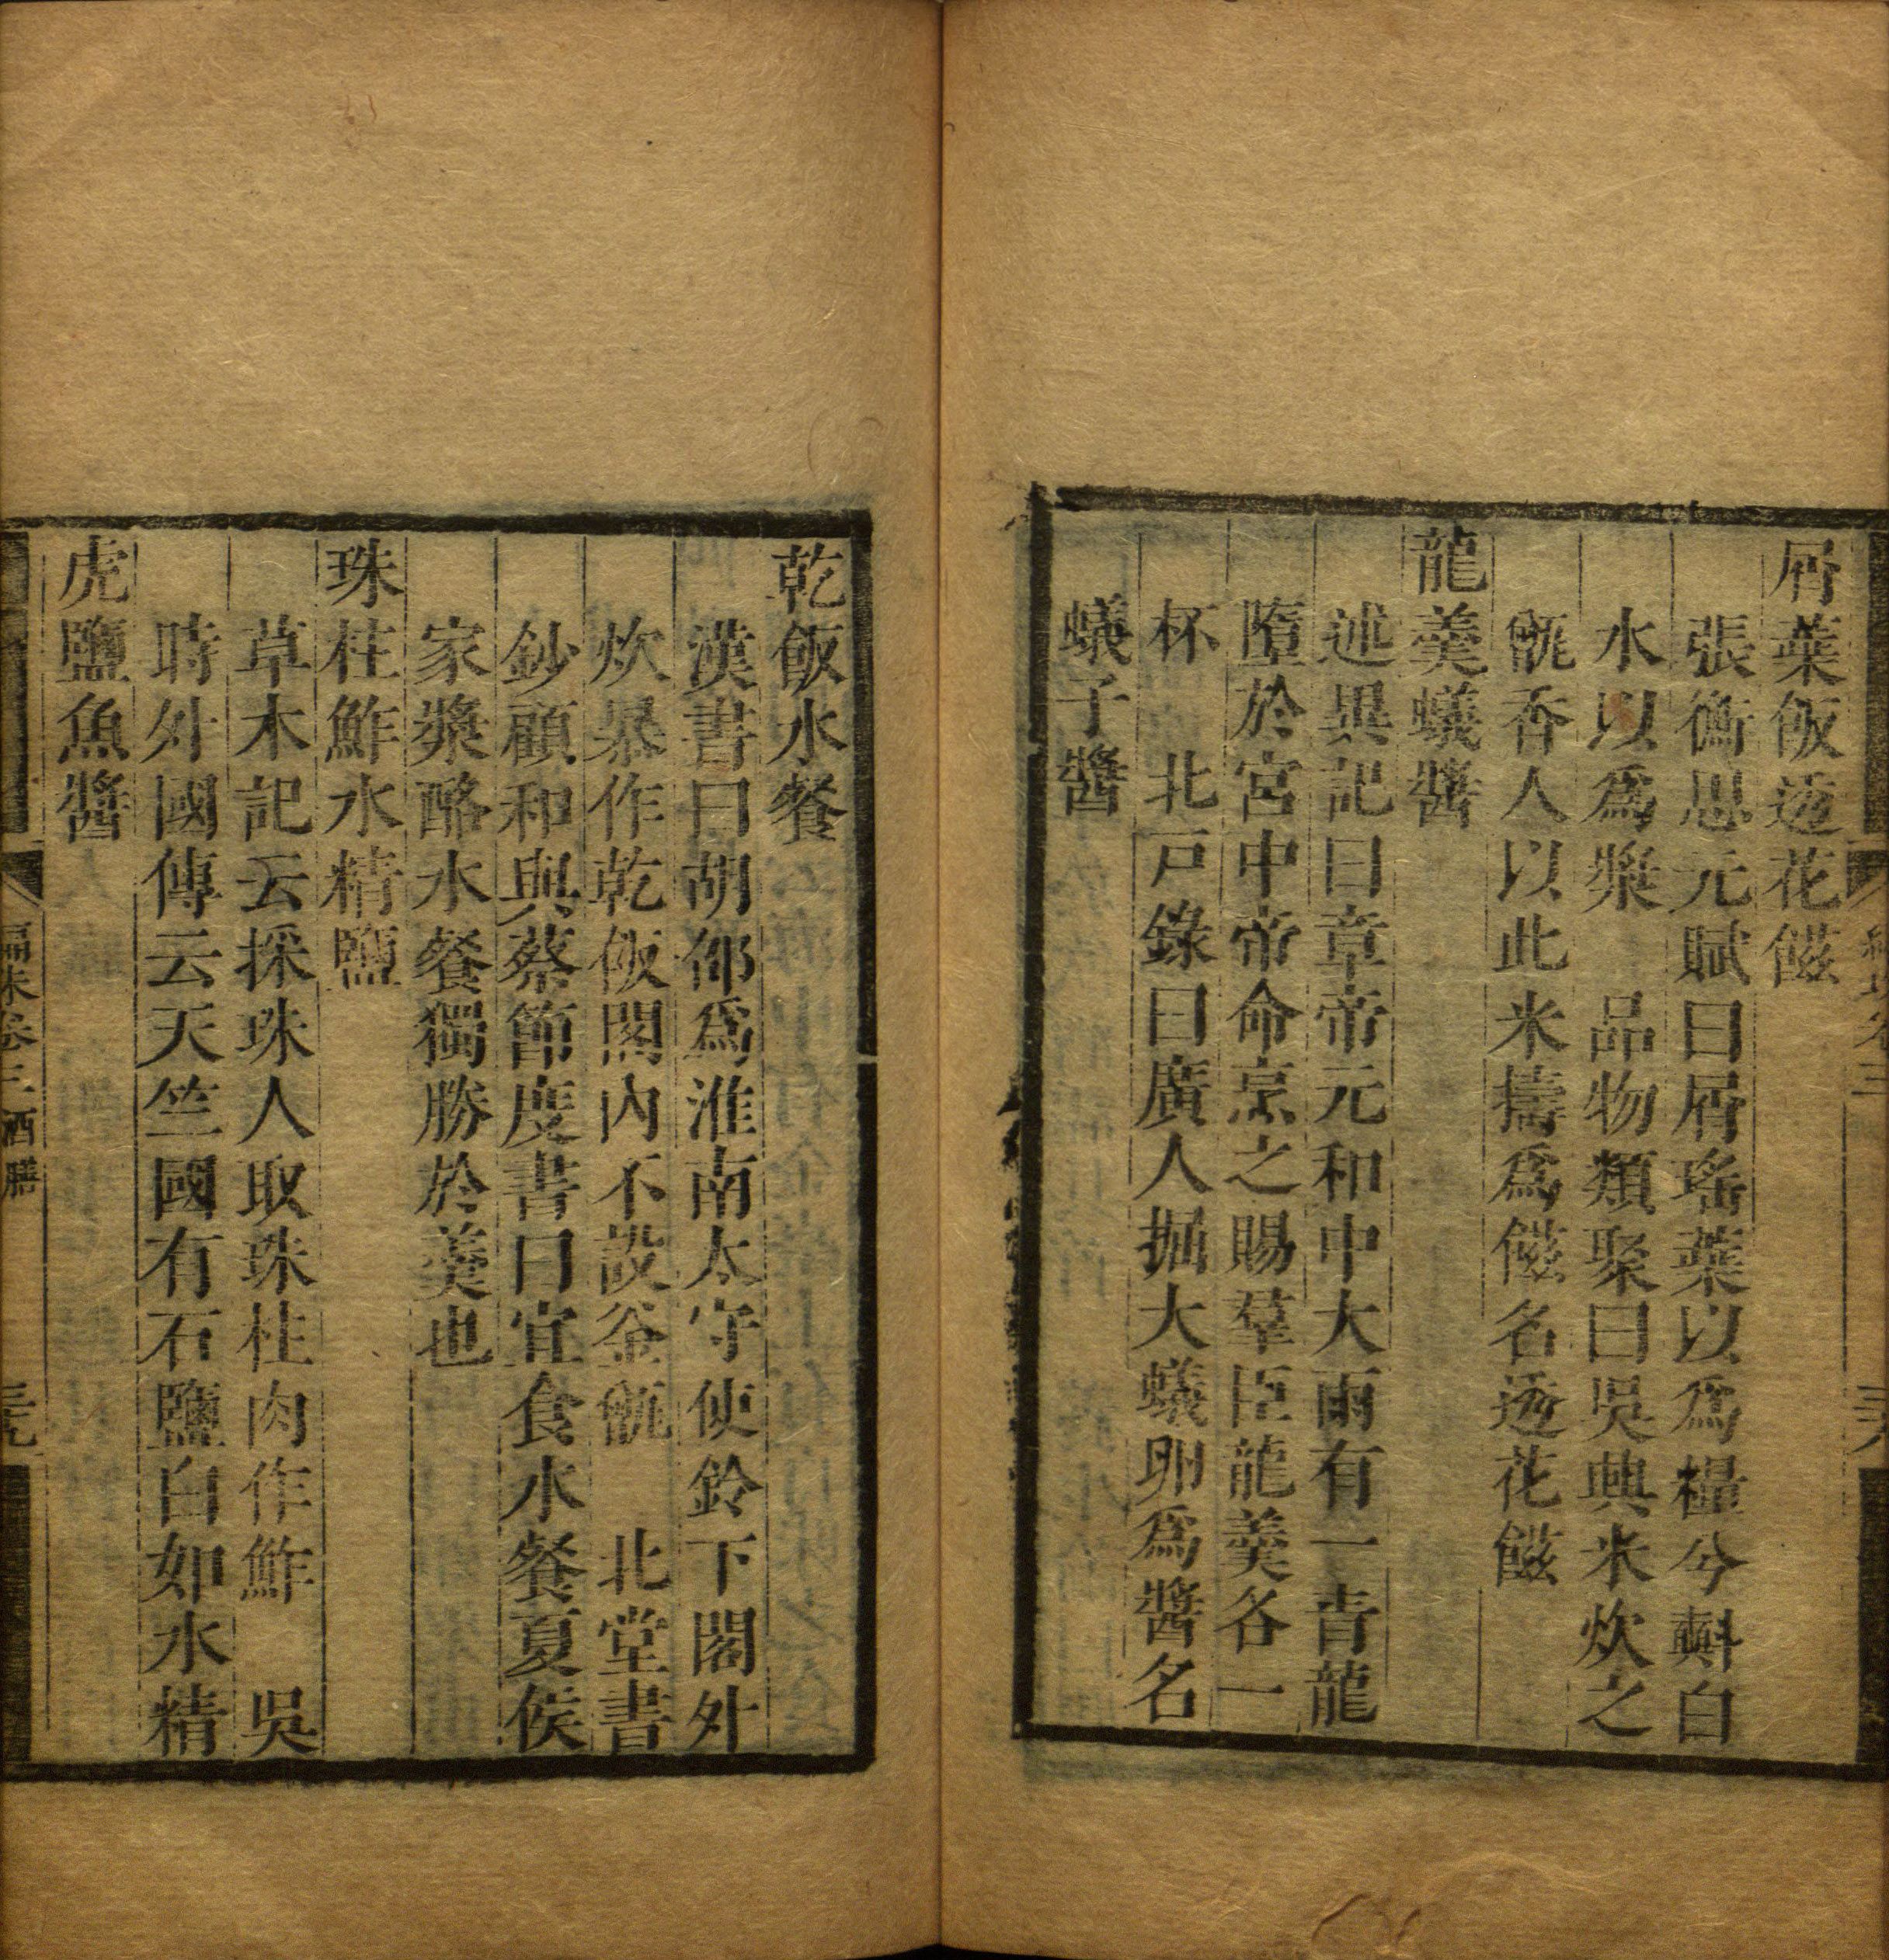 屑蘂飯透花餻
張衡思元賦曰屑瑤蘂以爲糧兮㪺白
水以爲漿　品物類聚曰吳興米炊之
甑香人以此米擣爲餻名透花餻
龍羹蟻醬
述異記曰章帝元和中大雨有一青龍
墮於宮中帝命烹之賜羣臣龍羹各一
杯　北戸錄曰廣人掘大蟻卵爲醬名
蟻子醬
乾飯水餐
漢書曰胡邵爲淮南太守使鈴下閣外
炊暴作乾飯閣內不設釜甑　北堂書
鈔顧和與蔡節度書曰宜食水餐夏侯
家漿酪水餐獨勝於羹也
珠柱鮓水精鹽
草木記云採珠人取珠柱肉作鮓　吳
時外國傳云天竺國有石鹽白如水精
虎鹽魚醬
編朱卷三 酒膳 三九